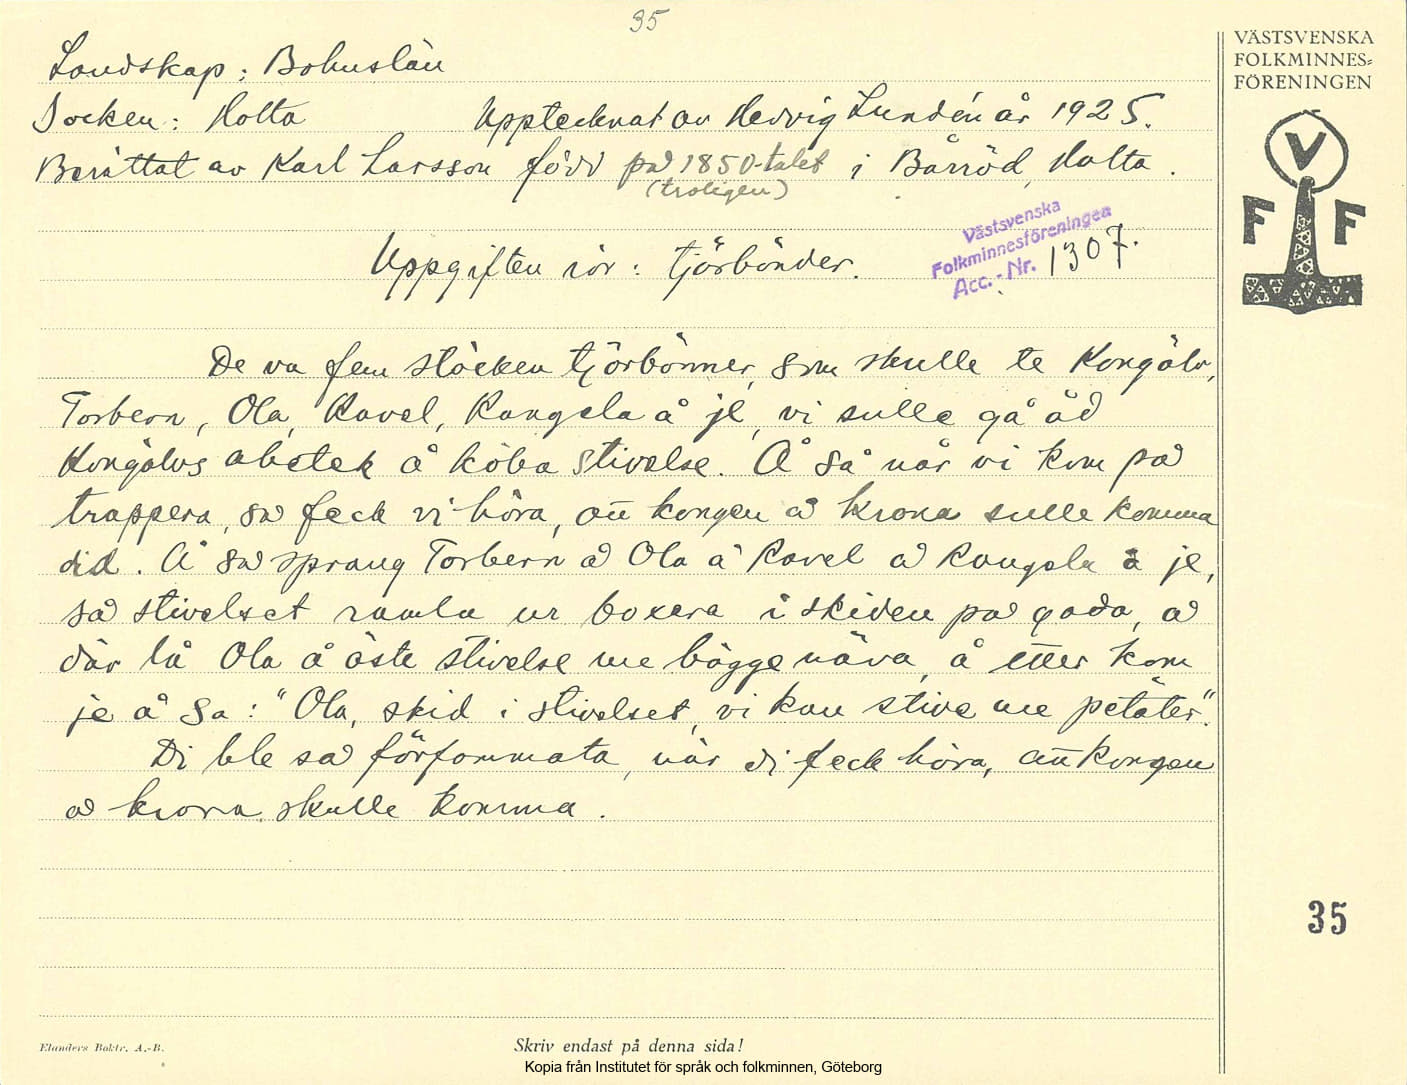 35
Landskap: Bohuslän
Socken: Holta Upptecknat av Hedvig Lundén år 1925.
Berättat av Karl Larsson född på 1850-talet i Bärröd, Holta.
(troligen)
Uppgiften rör: tjörbönder.
Västsvenska
Folkminnesföreningen
Acc.-Nr. 1307.
De va fem stöcken tjörbönner, som skulle te Kongälv,
Torbern, Ola, Kavel, Kangela å je, vi sulle gå åd
Kongälvs abetek å köba stivelse. Å så när vi kom på
trappera, så feck vi höra, att kongen å krona sulle komma
did. Å så sprang Torbern å Ola å Kavel å Kangela å je,
så stivelset ramla ur boxera i skiden på gada, å
där lå Ola å öste stivelse me bägge näva, å etter kom
je å sa: "Ola, skid i stivelset, vi kan stive me petäter".
Di ble så förfommata, när di feck höra, att kongen
å krona skulle komma.
VÄSTSVENSKA
FOLKMINNES=
FÖRENINGEN
V
F F
35
Elanders Boktr. A.-B.
Skriv endast på denna sida!
Kopia från Institutet för språk och folkminnen, Göteborg